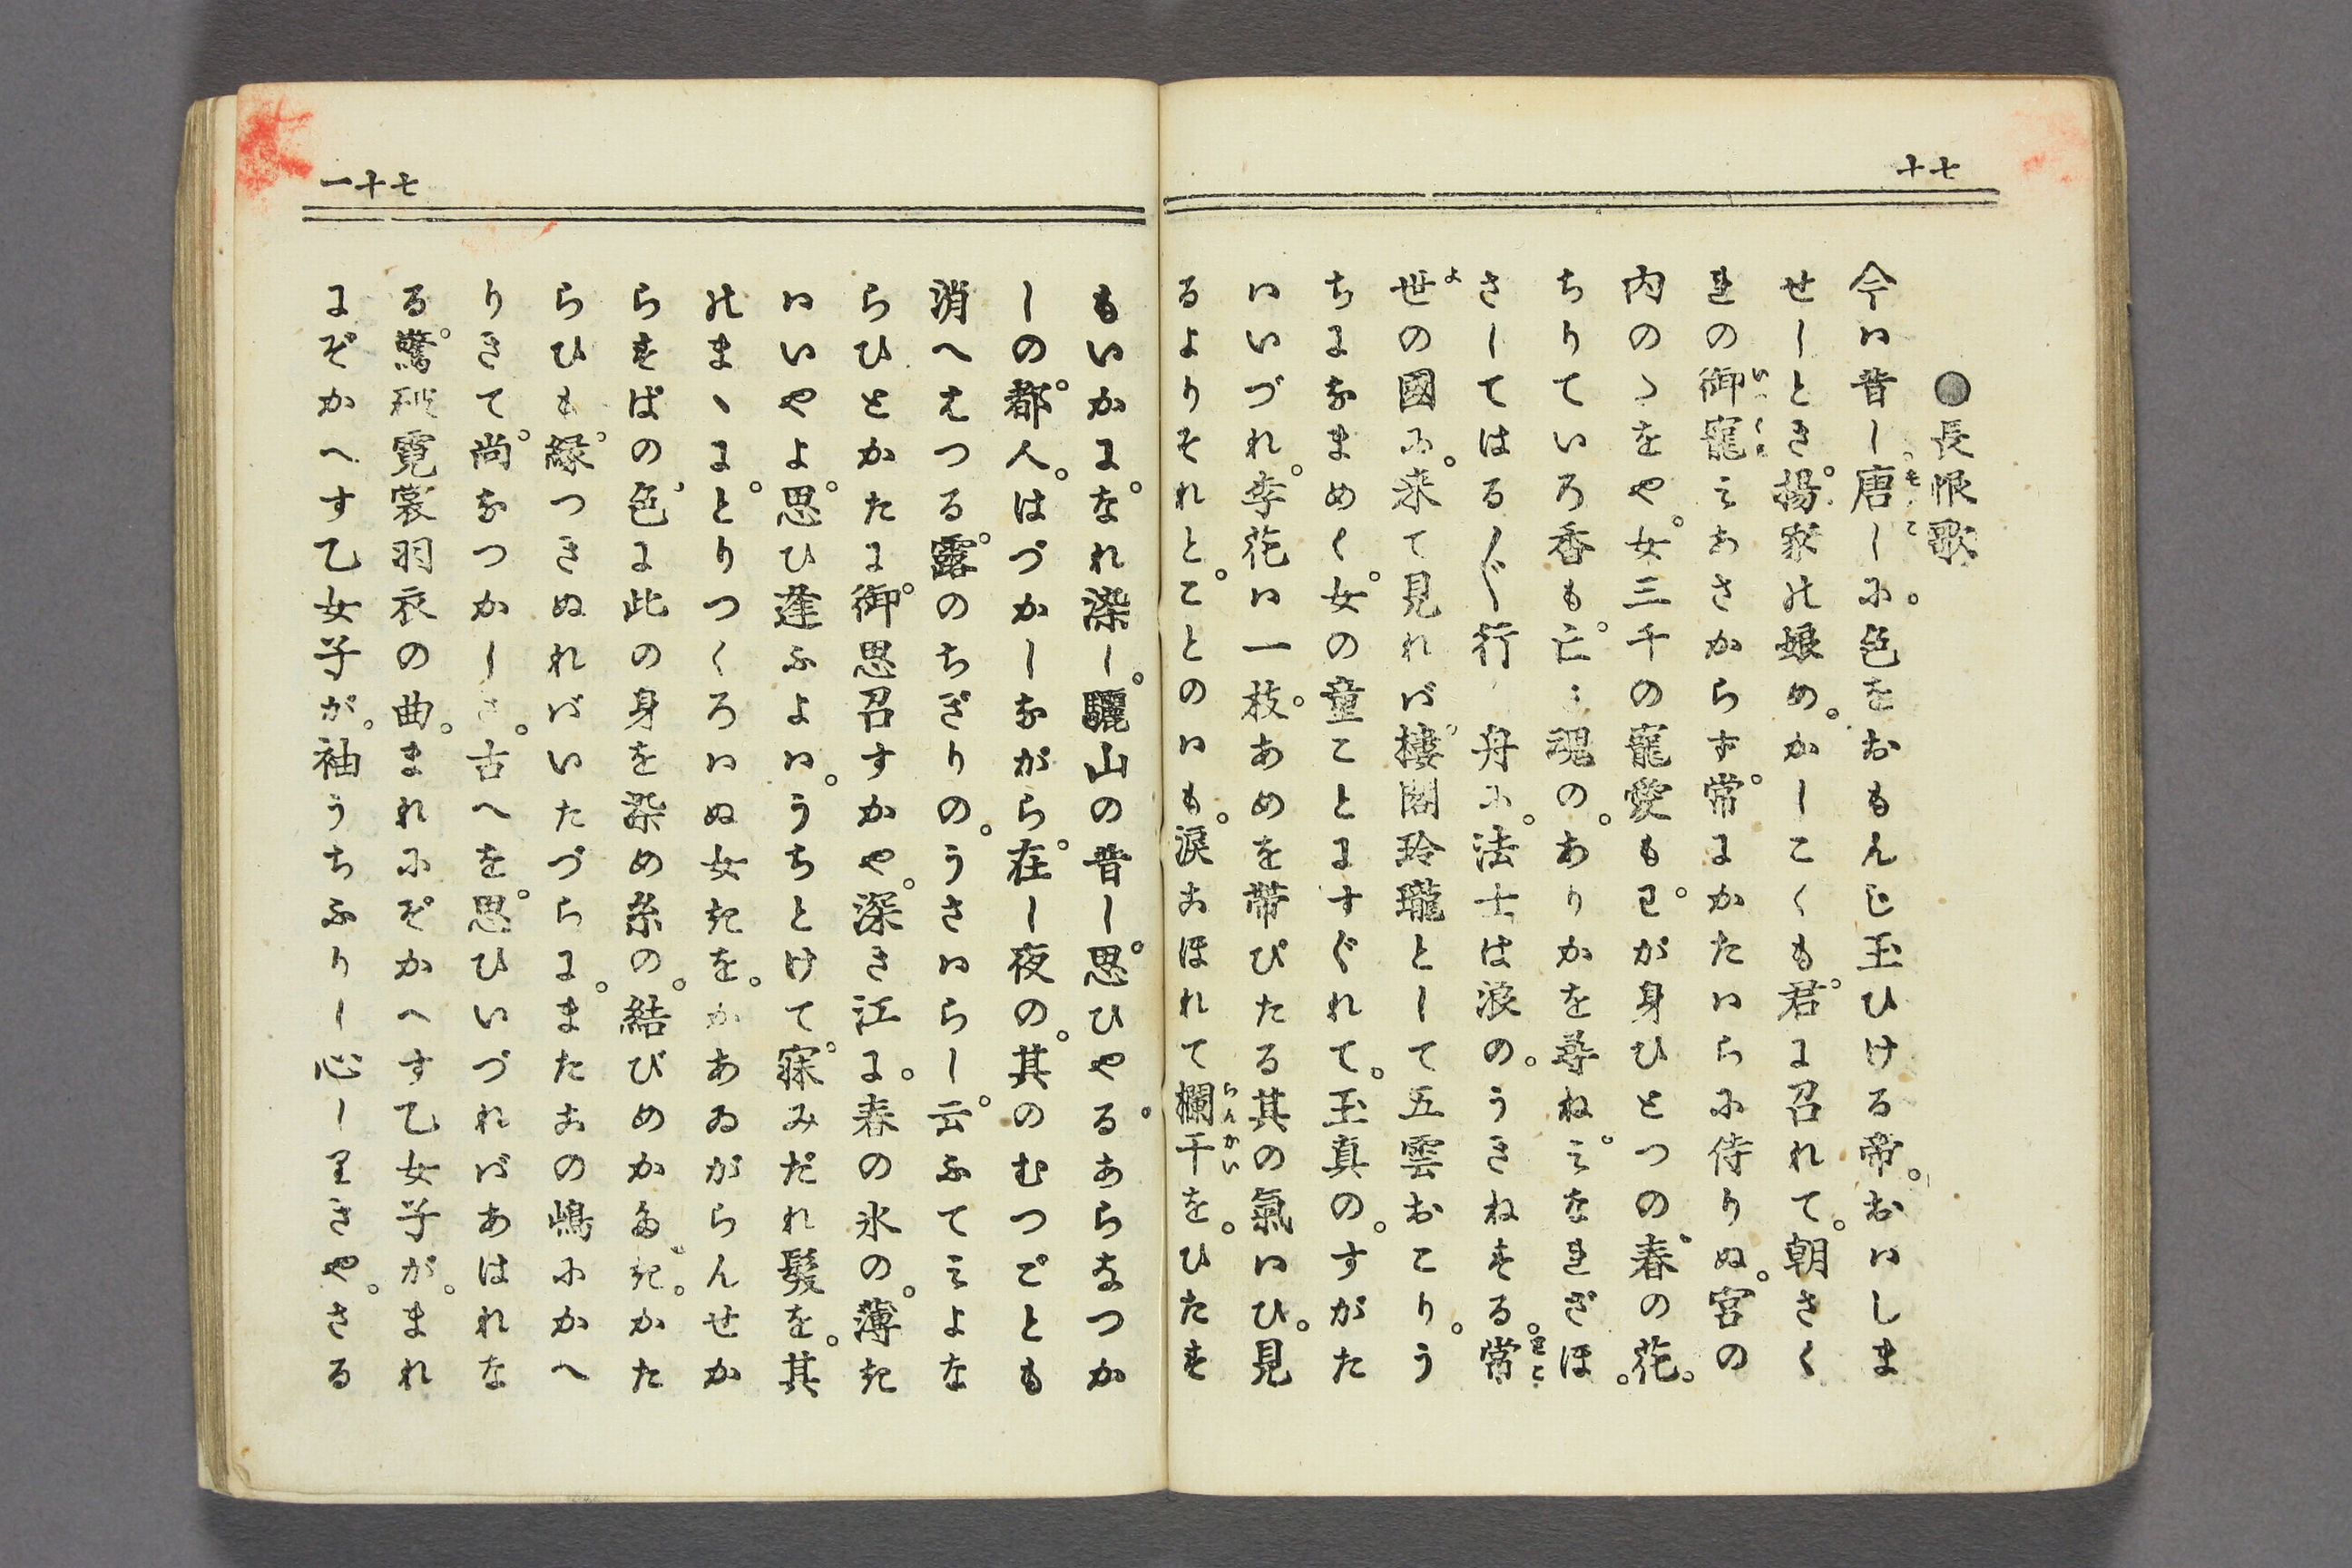 七十
●長恨歌
今は昔し。唐しに。色をおもんじ玉ひける帝。おはしま
せしとき。揚家の娘め。かしこくも君。に召れて。朝さく
れの御寵えあさからず。常にかたはらに侍りぬ。宮の
内のゝをや。女三千の寵愛も。已が身ひとつの春。の花。
ちりていろ香も。亡き魂の。ありかを尋ね。えなれざほ。
さしてはる〲行 舟に。法士は浪の。うきねする。常
世の國に。来て見れば。樓閣玲瓏として五雲おこり。う
ちになまめく。女の童ことにすぐれて。玉真の。すがた
はいづれ。李花は一枝。あめを帯びたる其の氣はひ。見
るよりそれと。ことのはも。涙におほれて欄干を。ひたす
七十一
もいかに。なれ染し。驪山の昔し。思ひやる。あらなつか
しの。都人。はづかしながら。在し夜の。其のむつごとも
消へえつる。露のちぎりの。うさはらし。云ふてえよな
らひとかたに。御思召すかや。深き江に。春の氷の。薄き
はいやよ。思ひ逢ふよは。うちとけて。寐みだれ髪を。其
のまゝに。とりつくろはぬ女気を。かあゐがらんせか
らすばの色、に此の身を染め糸の。結びめかたき。かた
らひも。縁つきぬればいたづらに。またこの嶋にかへ
りきて。尚なつかしさ。古へを。思ひいづればあはれな
る。驚破霓裳羽衣の曲。まれにぞかへす乙女子が。まれ
にぞかへす乙女子が。袖うちふりし心しりきや。さる